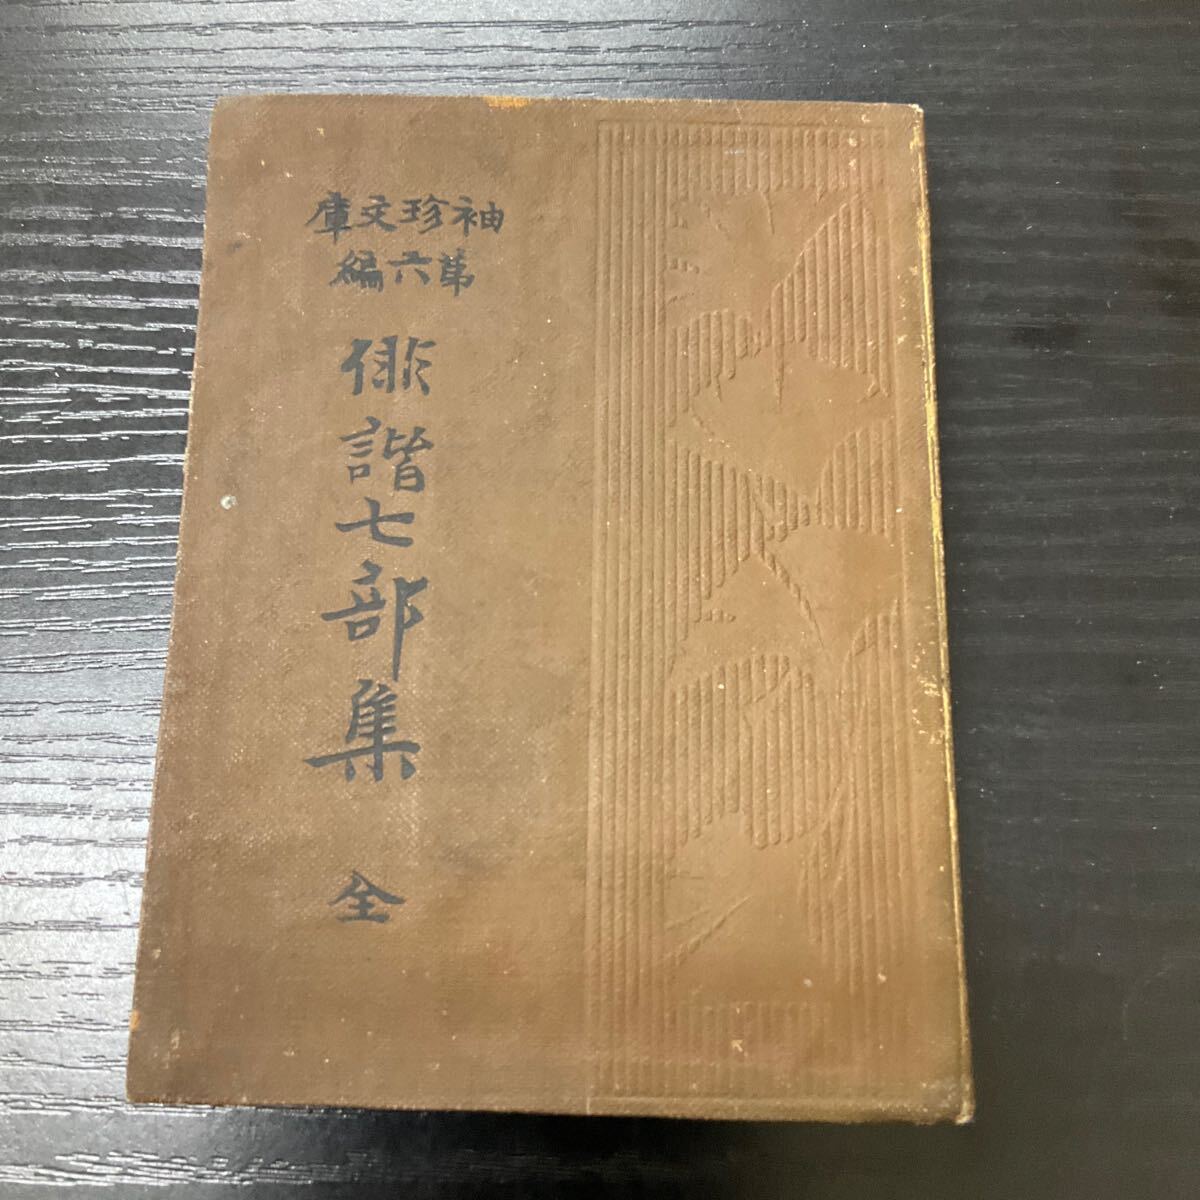 袖珍文庫
第六編
俳諧七部集 全